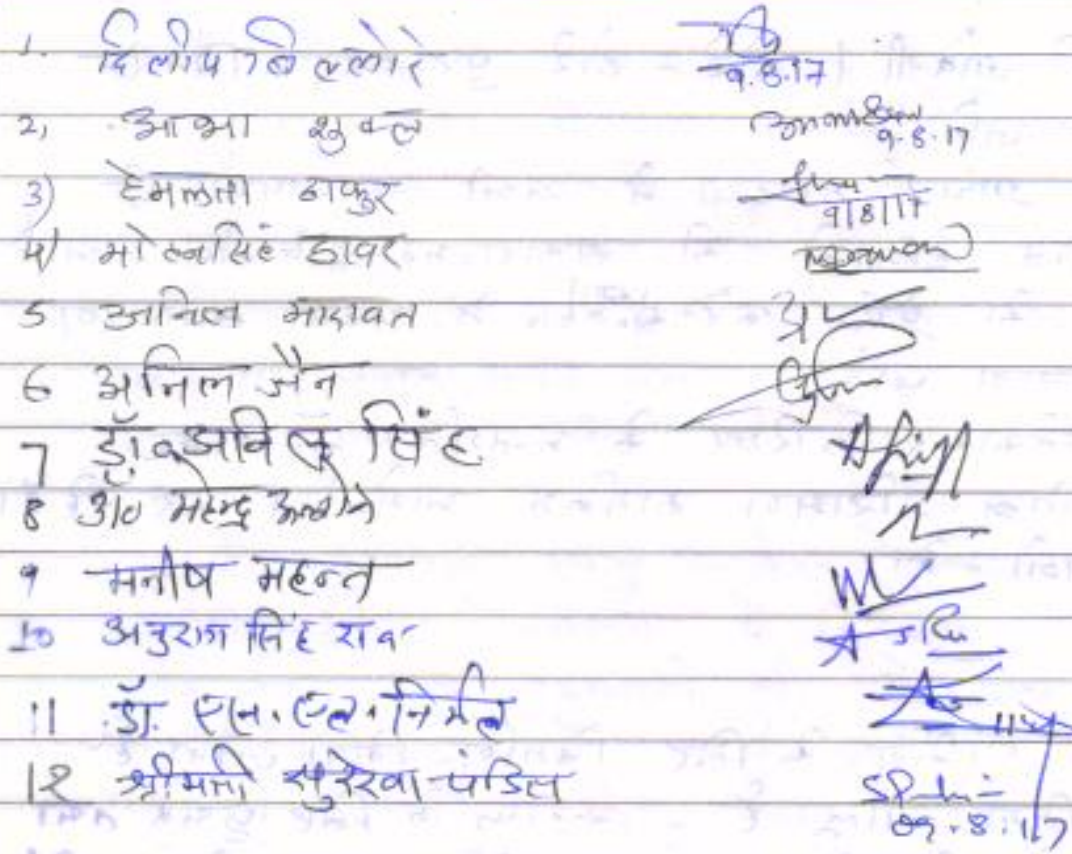 1. दिलीप बिल्लोरे 9.8.17
2, आभा शुक्ल 9.8.17
3) हेमलता ठाकुर 9/8/17
4) मोहनसिंह डावर
5 अनिल मादावत
6 अनिल जैन
7 डॉ० अनिल सिंह
8 डॉ० महेन्द्र
9 मनीष महन्त
10 अनुराग सिंह राव
11 डॉ. एन. एल. निर्मल
12 श्रीमती सुरेखा पंडित 09.8.17